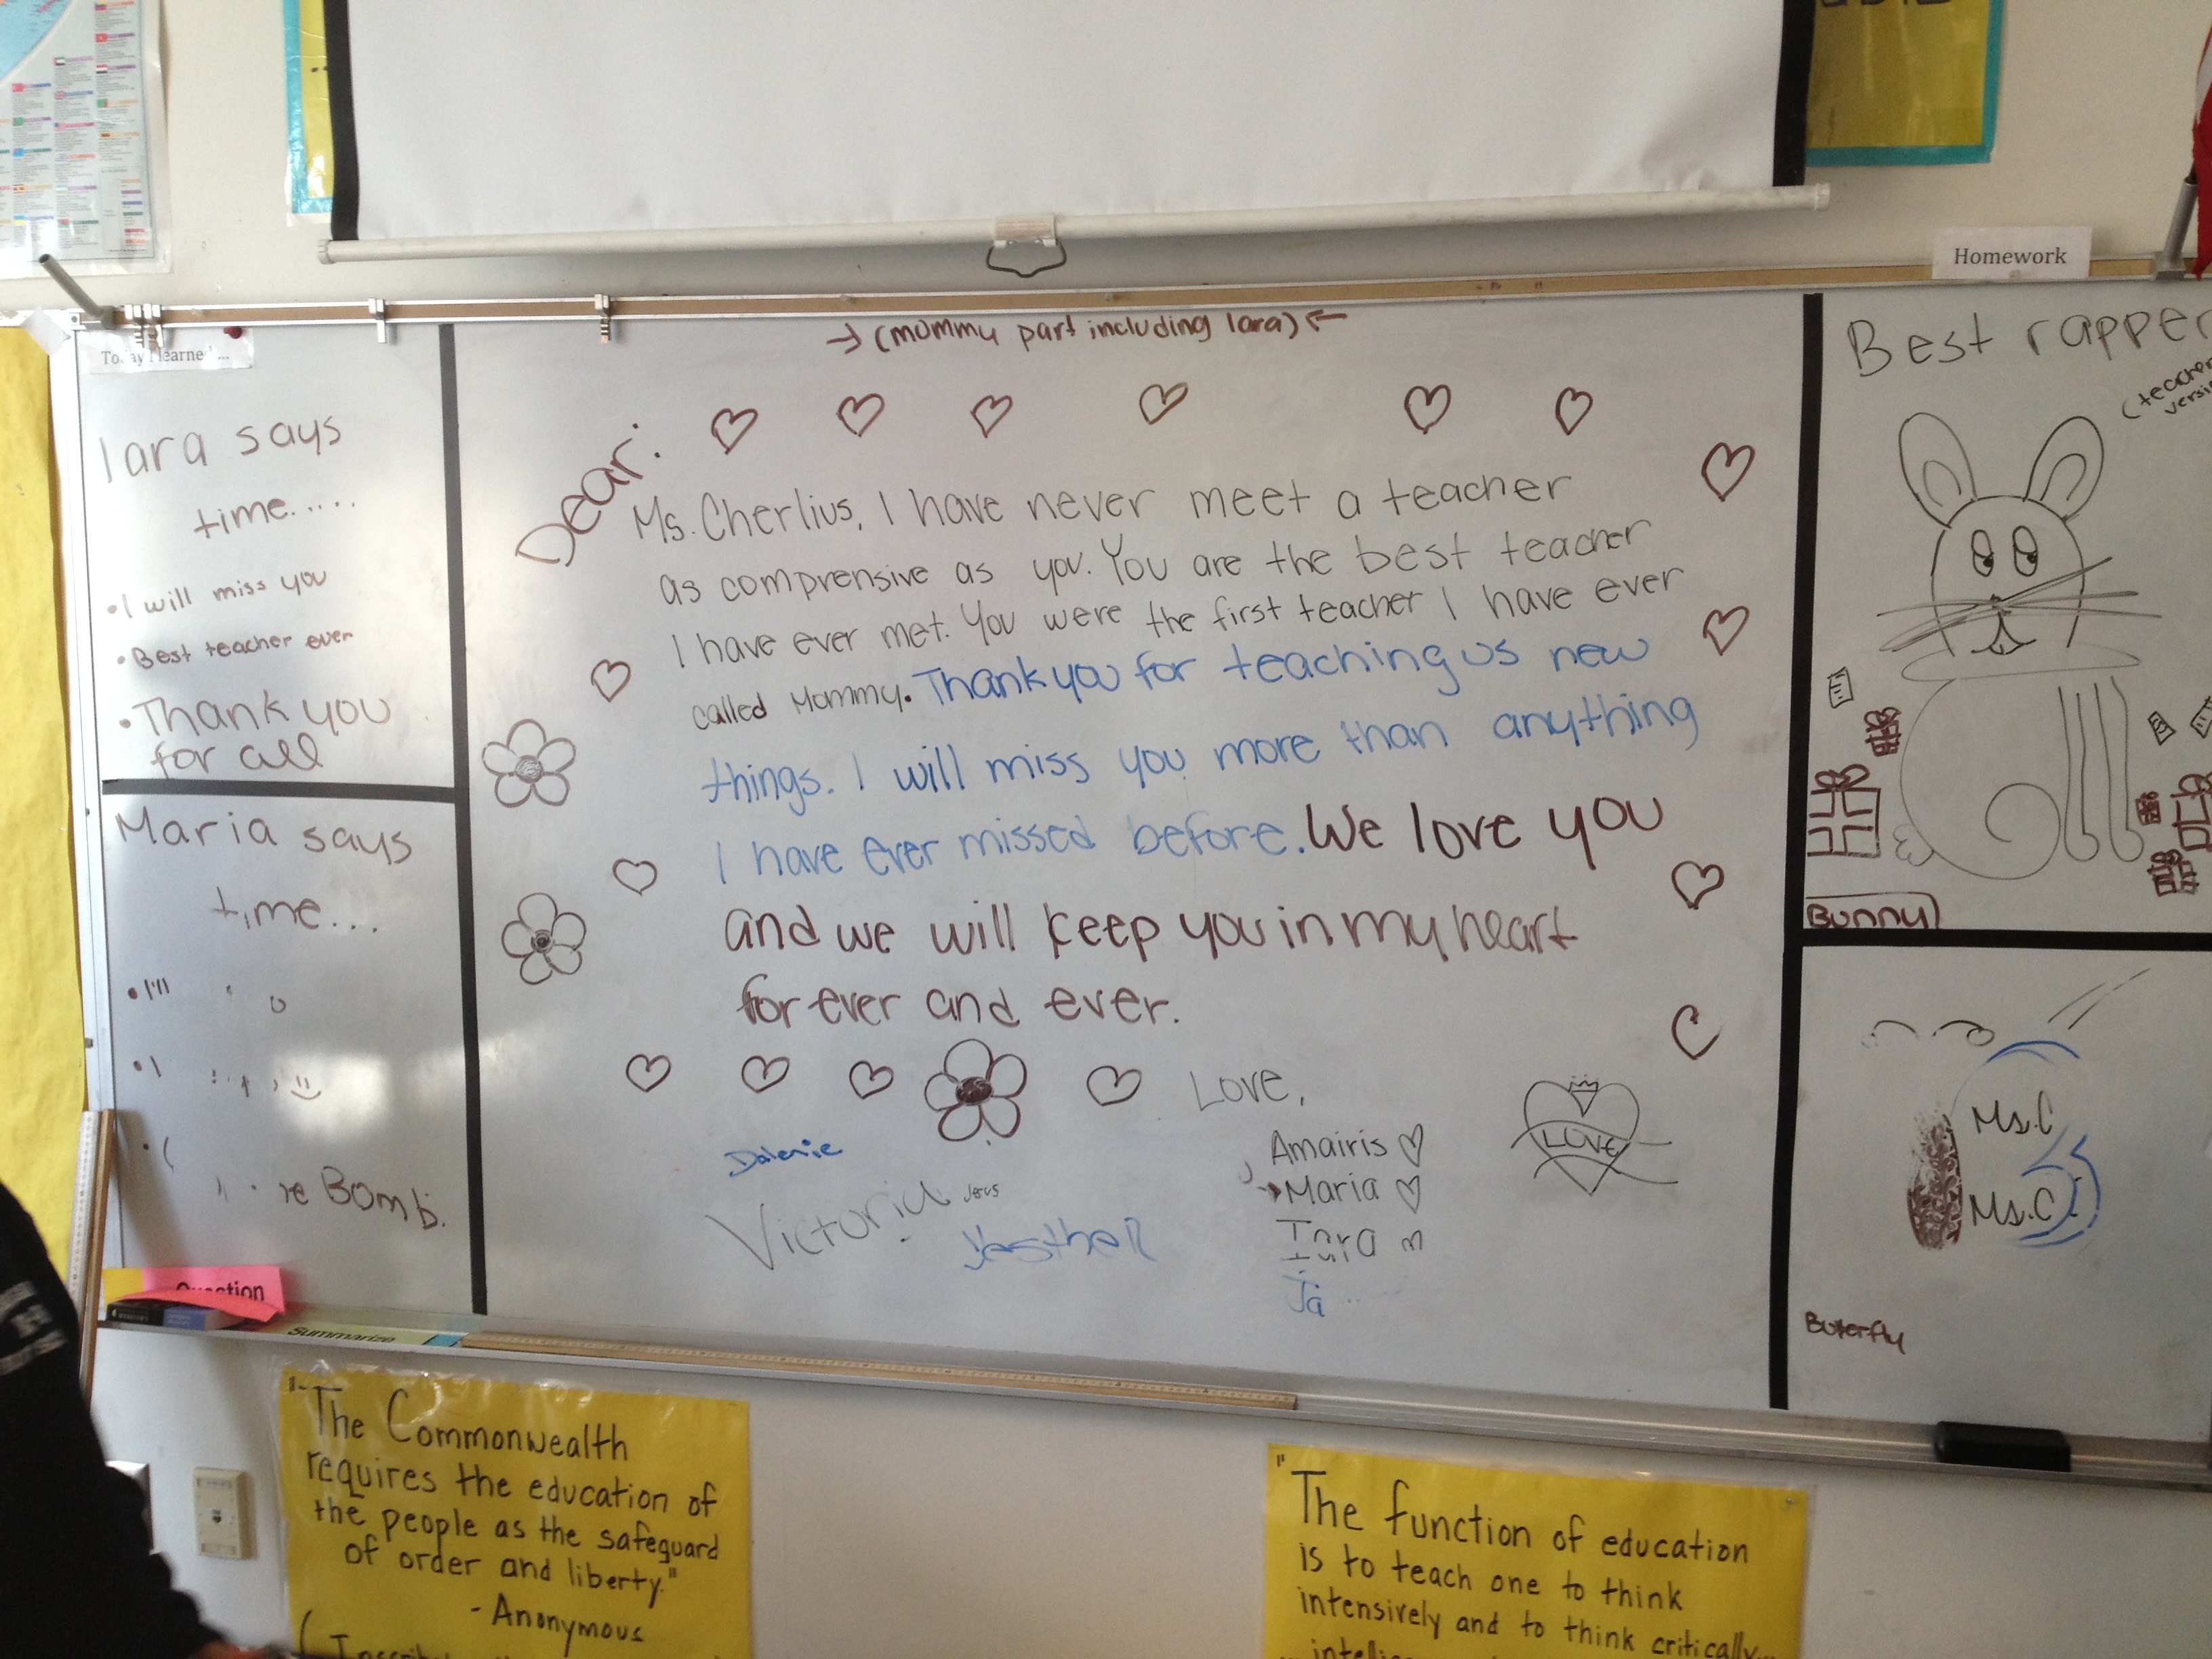 Homework
Today I learned ...
→ (mommy part including Iara) ←
Iara says
time.....
• I will miss you
• Best teacher ever
• Thank you
for all
Maria says
time...
• I'll
• I
Bomb.
Dear:
Ms. Cherlius, I have never meet a teacher
as comprensive as you. You are the best teacher
I have ever met. You were the first teacher I have ever
called Mommy. Thank you for teaching us new
things. I will miss you more than anything
I have ever missed before. We love you
and we will keep you in my heart
for ever and ever.
Love,
Amairis
Maria
Iara
Ja
Victoria
LOVE
Best rapper
(teacher
Bunny
Ms. C
Ms. C
Buterfly
Question
Summarize
"The Commonwealth
requires the education of
the people as the safeguard
of order and liberty."
- Anonymous
"The function of education
is to teach one to think
intensively and to think critically...